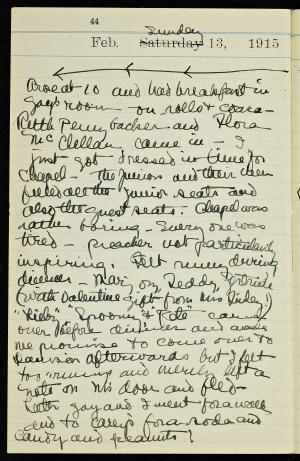 44
Sunday
Feb. Saturday 13, 1915
Arose at 10 and had breakfast in
Gay's room - on rolls & cocoa -
Ruth Pennybacker and Flora
McClellan, came in - I
just got dressed in time for
Chapel - The Juniors and their men
filled all the Junior seats and
also the guest seats. Chapel was
rather boring - Every one was
tired - preacher not particularly
inspiring. Felt during
dinner - Mary on, Teddy,
(with Valentine gift from Mrs )
" " Spooner & came
over before dinner and made
me promise to come over to
afterwards but I felt
too and merely left a
note on his door and fled -
Later Gay and I went for a walk
and to Carey's for a soda and
candy and peanuts!